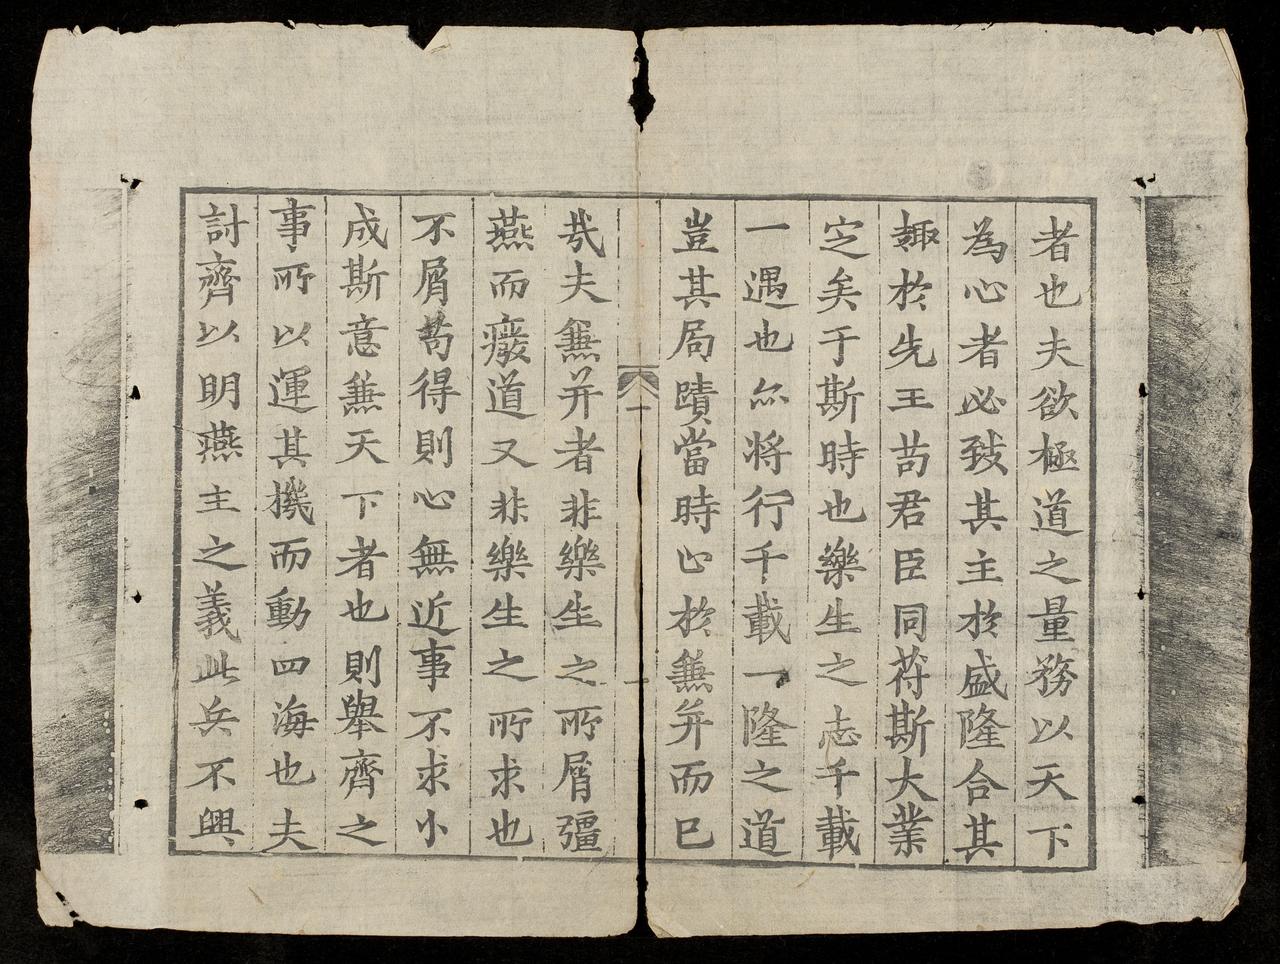 者也夫欲極道之量務以天下
為心者必致其主於盛隆合其
趣於先王苟君臣同苻斯大業
定矣于斯時也樂生之志千載
一遇也亦将行千載一隆之道
豈其局蹟當時心於兼并而已
哉夫兼并者非樂生之所屑彊
燕而廢道又非樂生之所求也
不屑苟得則心無近事不求小
成斯意兼天下者也則舉齊之
事所以運其機而動四海也夫
討齊以明燕主之義此兵不興